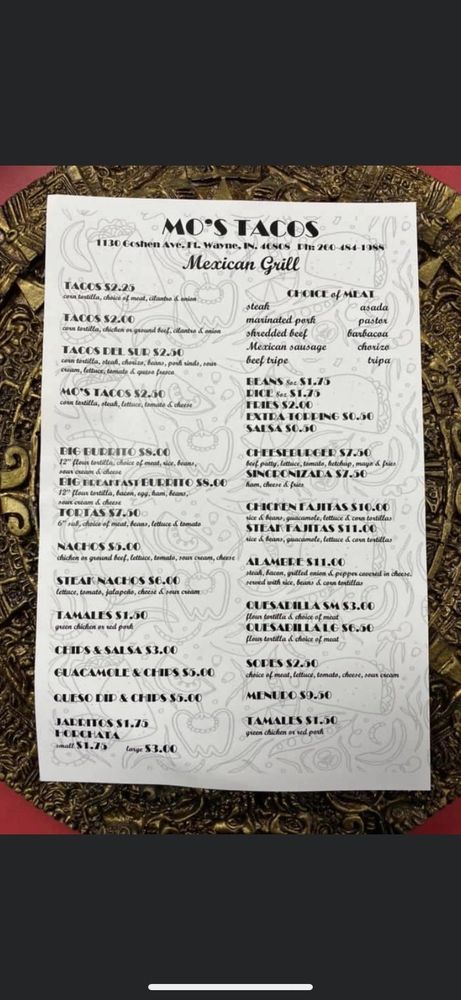 MO'S TACOS
1130 Goshen Ave, Ft. Wayne, IN, 46808 Ph: 260-484-1988
Mexican Grill
TACOS $2.25
corn tortilla, choice of meat, cilantro & onion
TACOS $2.00
corn tortilla, chicken or ground beef, cilantro & onion
TACOS DEL SUR $2.50
corn tortilla, steak, chorizo, beans, pork rinds, sour
cream, lettuce, tomato & queso fresco
MO'S TACOS $2.50
corn tortilla, steak, lettuce, tomato & cheese
BIG BURRITO $8.00
12" flour tortilla, choice of meat, rice, beans,
sour cream & cheese
BIG BREAKFAST BURRITO $8.00
12" flour tortilla, bacon, egg, ham, beans,
sour cream & cheese
TORTAS $7.50
6" sub, choice of meat, beans, lettuce & tomato
NACHOS $5.00
chicken or ground beef, lettuce, tomato, sour cream, cheese
STEAK NACHOS $6.00
lettuce, tomato, jalapeño, cheese & sour cream
TAMALES $1.50
green chicken or red pork
CHIPS & SALSA $3.00
GUACAMOLE & CHIPS $5.00
QUESO DIP & CHIPS $5.00
JARRITOS $1.75
HORCHATA
small $1.75 large $3.00
CHOICE of MEAT
steak asada
marinated pork pastor
shredded beef barbacoa
Mexican sausage chorizo
beef tripe tripa
BEANS 8oz $1.75
RICE 8oz $1.75
FRIES $2.00
EXTRA TOPPING $0.50
SALSA $0.50
CHEESEBURGER $7.50
beef patty, lettuce, tomato, ketchup, mayo & fries
SINCRONIZADA $7.50
ham, cheese & fries
CHICKEN FAJITAS $10.00
rice & beans, guacamole, lettuce & corn tortillas
STEAK FAJITAS $11.00
rice & beans, guacamole, lettuce & corn tortillas
ALAMBRE $11.00
steak, bacon, grilled onion & pepper covered in cheese,
served with rice, beans & corn tortillas
QUESADILLA SM $3.00
flour tortilla & choice of meat
QUESADILLA LG $6.50
flour tortilla & choice of meat
SOPES $2.50
choice of meat, lettuce, tomato, cheese, sour cream
MENUDO $9.50
TAMALES $1.50
green chicken or red pork